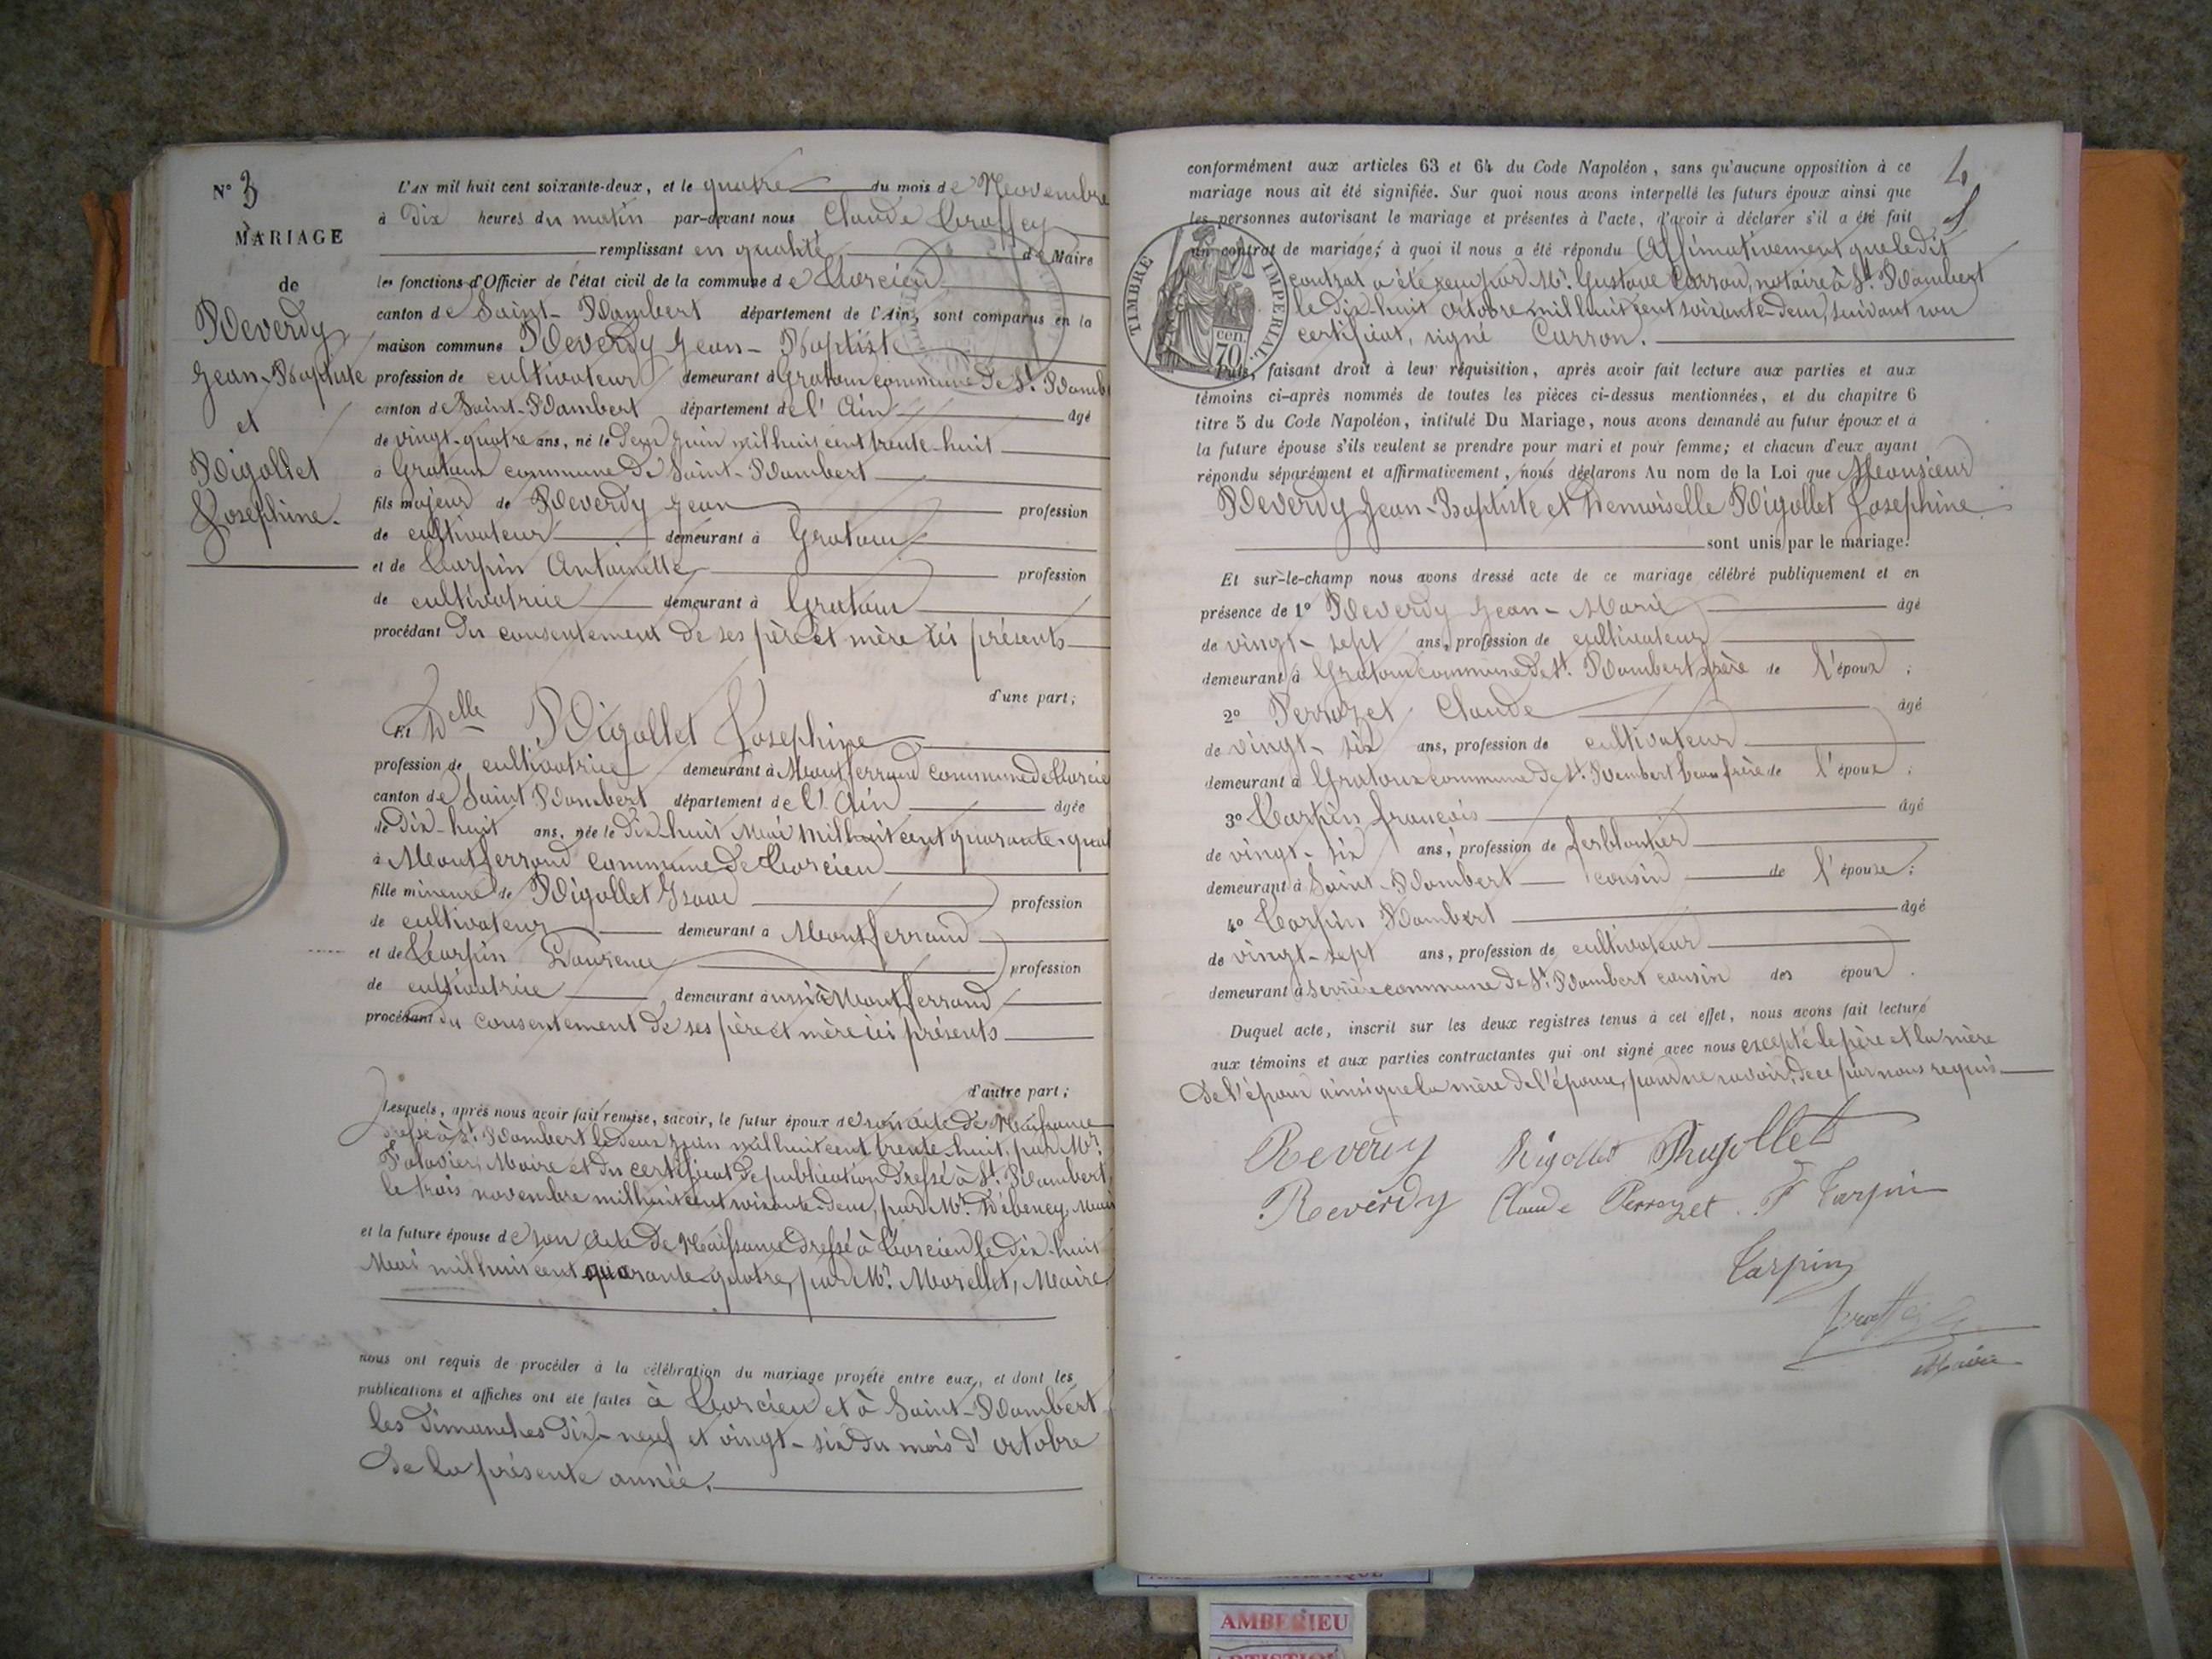 N° 3
MARIAGE
de
Reverdy
Jean-Baptiste
et
Rigollet
Josephine.
L'AN mil huit cent soixante-deux, et le quatre du mois de Novembre
à dix heures du matin par-devant nous Claude
remplissant en qualité de Maire
les fonctions d'Officier de l'état civil de la commune de Torcieu
canton de Saint-Rambert département de l'Ain, sont comparus en la
maison commune Reverdy Jean-Baptiste
profession de cultivateur demeurant à Gratoux commune de St. Ramb
canton de Saint-Rambert département de l'Ain âgé
de vingt-quatre ans, né le deux Juin mil huit cent trente-huit
à Gratoux commune de Saint-Rambert
fils majeur de Reverdy Jean profession
de cultivateur demeurant à Gratoux
et de Tarpin Antoinette profession
de cultivatrice demeurant à Gratoux
procédant du consentement de ses père et mère ici présents
d'une part;
Et Delle Rigollet Josephine
profession de cultivatrice demeurant à Montferrand commune de Torcie
canton de Saint Rambert département de l'Ain âgée
de dix-huit ans, née le dix-huit Mai mil huit cent quarante-quat
à Montferrand commune de Torcieu
fille mineure de Rigollet Isaac profession
de cultivateur demeurant à Montferrand
et de Tarpin Laurence profession
de cultivatrice demeurant à aussi à Montferrand
procédant du consentement de ses père et mère ici présents
d'autre part;
Lesquels, après nous avoir fait remise, savoir, le futur époux de son acte de Naissance
dressé à St. Rambert le deux Juin mil huit cent trente-huit, par Mr.
Maire et du certificat de publication dressé à St. Rambert,
le trois novembre mil huit cent soixante-deux, par Mr. Débeney, Mair
et la future épouse de son acte de Naissance dressé à Torcieu le dix-huit
Mai mil huit cent quarante-quatre, par Mr. Morellet, Maire
nous ont requis de procéder à la célébration du mariage projeté entre eux, et dont les
publications et affiches ont été faites à Torcieu et à Saint-Rambert
les dimanches dix-neuf et vingt-six du mois d'octobre
de la présente année.
4
conformément aux articles 63 et 64 du Code Napoléon, sans qu'aucune opposition à ce
mariage nous ait été signifiée. Sur quoi nous avons interpellé les futurs époux ainsi que
les personnes autorisant le mariage et présentes à l'acte, d'avoir à déclarer s'il a été fait
un contrat de mariage; à quoi il nous a été répondu Affimativement que le dit
contrat a été reçu par Mr. Gustave Carron, notaire à St. Rambert
le dix-huit octobre mil huit cent soixante-deux, suivant son
certificat, signé Carron.
TIMBRE IMPERIAL
70 cen.
Puis, faisant droit à leur réquisition, après avoir fait lecture aux parties et aux
témoins ci-après nommés de toutes les pièces ci-dessus mentionnées, et du chapitre 6
titre 5 du Code Napoléon, intitulé Du Mariage, nous avons demandé au futur époux et à
la future épouse s'ils veulent se prendre pour mari et pour femme; et chacun d'eux ayant
répondu séparément et affirmativement, nous déclarons Au nom de la Loi que Monsieur
Reverdy Jean-Baptiste et Demoiselle Rigollet Josephine
sont unis par le mariage.
Et sur-le-champ nous avons dressé acte de ce mariage célébré publiquement et en
présence de 1° Reverdy Jean-Marie âgé
de vingt-sept ans, profession de cultivateur
demeurant à Gratoux commune de St. Rambert frère de l'époux;
2° Perrozet Claude âgé
de vingt-six ans, profession de cultivateur
demeurant à Gratoux commune de St. Rambert beau frère de l'époux;
3° Tarpin françois âgé
de vingt-six ans, profession de ferblantier
demeurant à Saint-Rambert cousin de l'épouse;
4° Tarpin Rambert âgé
de vingt-sept ans, profession de cultivateur
demeurant à Serrière commune de St. Rambert cousin des époux.
Duquel acte, inscrit sur les deux registres tenus à cet effet, nous avons fait lecture
aux témoins et aux parties contractantes qui ont signé avec nous excepté le père et la mère
de l'époux ainsi que la mère de l'épouse, pour ne savoir, de ce par nous requis
Reverdy Rigollet Rigollet
Reverdy Claude Perrozet F Tarpin
Tarpin
Maire
AMBERIEU
ARTISTIQUE